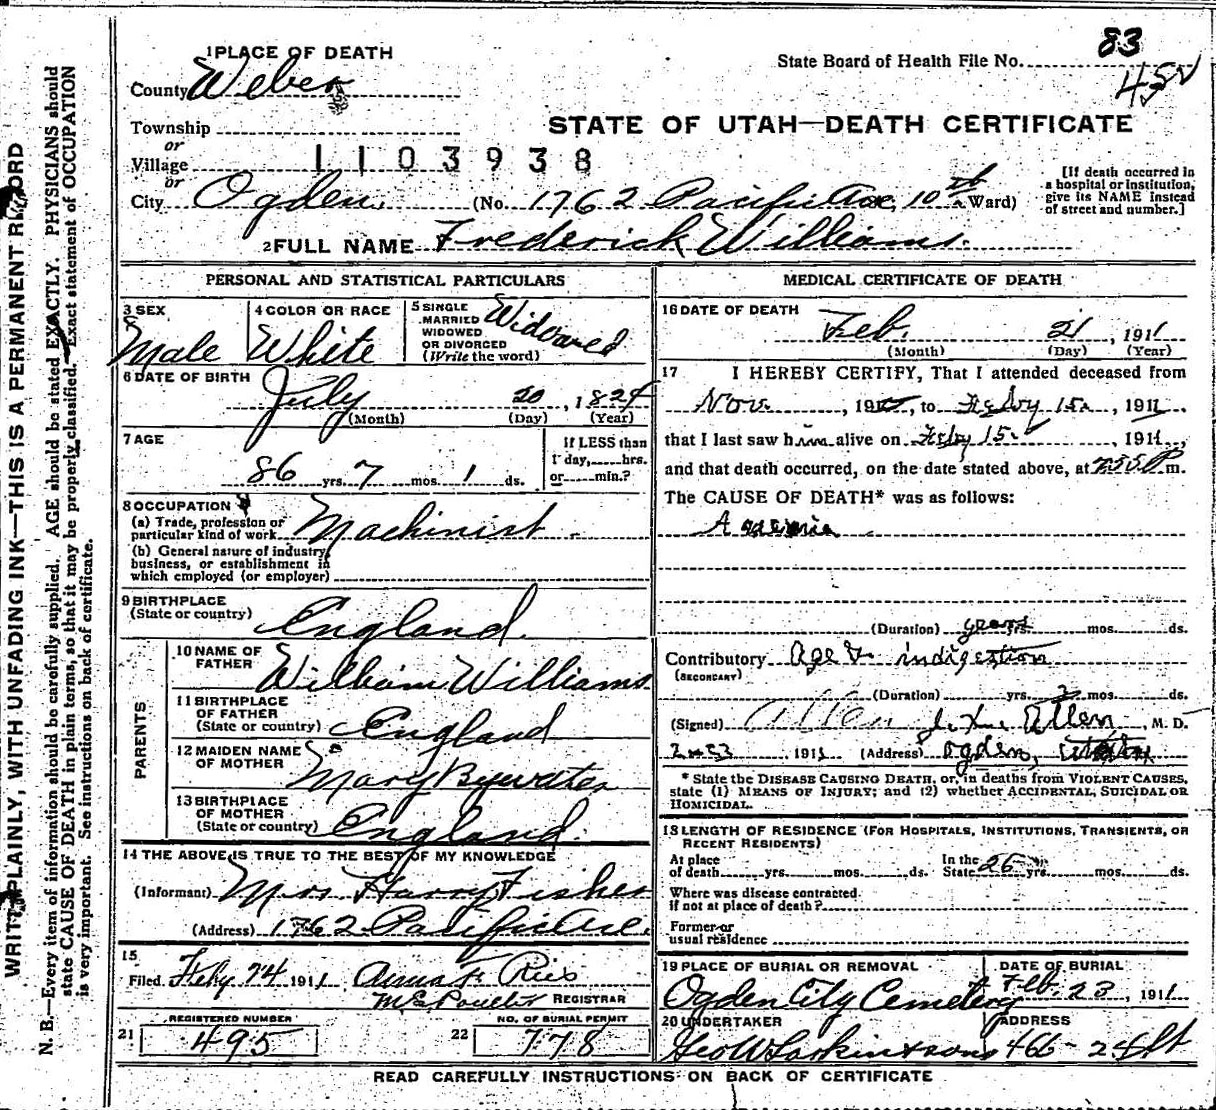 1 PLACE OF DEATH
County Weber
State Board of Health File No. 83
Township
or
Village
1103938
or
STATE OF UTAH—DEATH CERTIFICATE
City Ogden. (No. 1762 Pacific Ave, 10th Ward)
[If death occurred in
a hospital or institution,
give its NAME instead
of street and number.]
2 FULL NAME Frederick Williams.
PERSONAL AND STATISTICAL PARTICULARS
3 SEX
Male
4 COLOR OR RACE
White
5 SINGLE
MARRIED
WIDOWED
OR DIVORCED
(Write the word)
Widowed
6 DATE OF BIRTH
July 20, 1824
(Month) (Day) (Year)
7 AGE
86 yrs. 7 mos. 1 ds.
If LESS than
1 day, hrs.
or min.?
8 OCCUPATION
(a) Trade, profession or
particular kind of work Machinist
(b) General nature of industry,
business, or establishment in
which employed (or employer)
9 BIRTHPLACE
(State or country)
England.
PARENTS
10 NAME OF
FATHER
William Williams
11 BIRTHPLACE
OF FATHER
(State or country)
England
12 MAIDEN NAME
OF MOTHER
Mary Bywater
13 BIRTHPLACE
OF MOTHER
(State or country)
England.
14 THE ABOVE IS TRUE TO THE BEST OF MY KNOWLEDGE
(Informant) Mrs Harry Fisher
(Address) 1762 Pacific Ave.
15
Filed Feby 24 1911
REGISTRAR
REGISTERED NUMBER
21 495
NO. OF BURIAL PERMIT
22 778
MEDICAL CERTIFICATE OF DEATH
16 DATE OF DEATH
Feb. 21, 1911
(Month) (Day) (Year)
17 I HEREBY CERTIFY, That I attended deceased from
Nov., 19, to Feby 15., 1911.
that I last saw him alive on Feby 15., 1911,
and that death occurred, on the date stated above, at P m.
The CAUSE OF DEATH* was as follows:
(Duration) years yrs. mos. ds.
Contributory Age & indigestion
(SECONDARY)
(Duration) yrs. mos. ds.
(Signed) Allen, M. D.
1911 (Address) Ogden, Utah
* State the DISEASE CAUSING DEATH, or, in deaths from VIOLENT CAUSES,
state (1) MEANS OF INJURY; and (2) whether ACCIDENTAL, SUICIDAL OR
HOMICIDAL.
18 LENGTH OF RESIDENCE (FOR HOSPITALS, INSTITUTIONS, TRANSIENTS, OR
RECENT RESIDENTS)
At place
of death yrs. mos. ds.
In the
State 26 yrs. mos. ds.
Where was disease contracted
if not at place of death?
Former or
usual residence
19 PLACE OF BURIAL OR REMOVAL
Ogden City Cemetery
DATE OF BURIAL
Feb. 23, 1911
20 UNDERTAKER
Geo W Larkin & sons
ADDRESS
466 - 24 St
READ CAREFULLY INSTRUCTIONS ON BACK OF CERTIFICATE
WRITE PLAINLY, WITH UNFADING INK—THIS IS A PERMANENT RECORD
N. B.—Every item of information should be carefully supplied. AGE should be stated EXACTLY. PHYSICIANS should
state CAUSE OF DEATH in plain terms, so that it may be properly classified. Exact statement of OCCUPATION
is very important. See instructions on back of certificate.